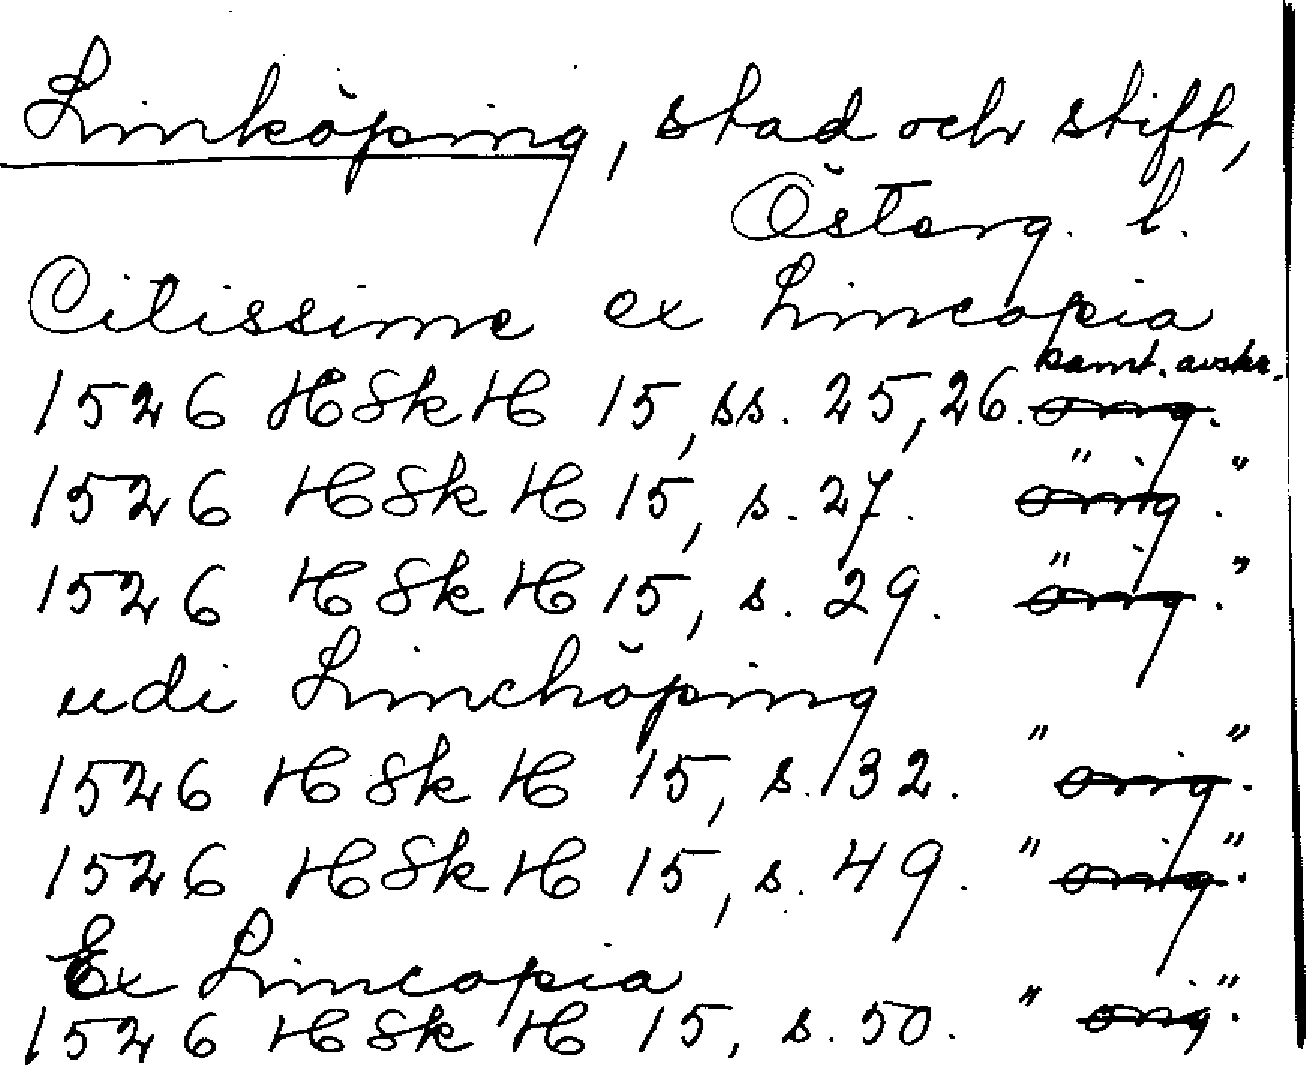 Linköping, stad och stift,
Österg. l.
Citissime ex Lincopia
samt. avskr.
1526 HSkH 15, ss. 25, 26. orig.
1526 HSkH 15, s. 27. orig. " "
1526 HSkH 15, s. 29. orig. " "
udi Linchöping
1526 HSkH 15, s. 32. " orig. "
1526 HSkH 15, s. 49. " orig. "
Ex Lincopia
1526 HSkH 15, s. 50. " orig. "